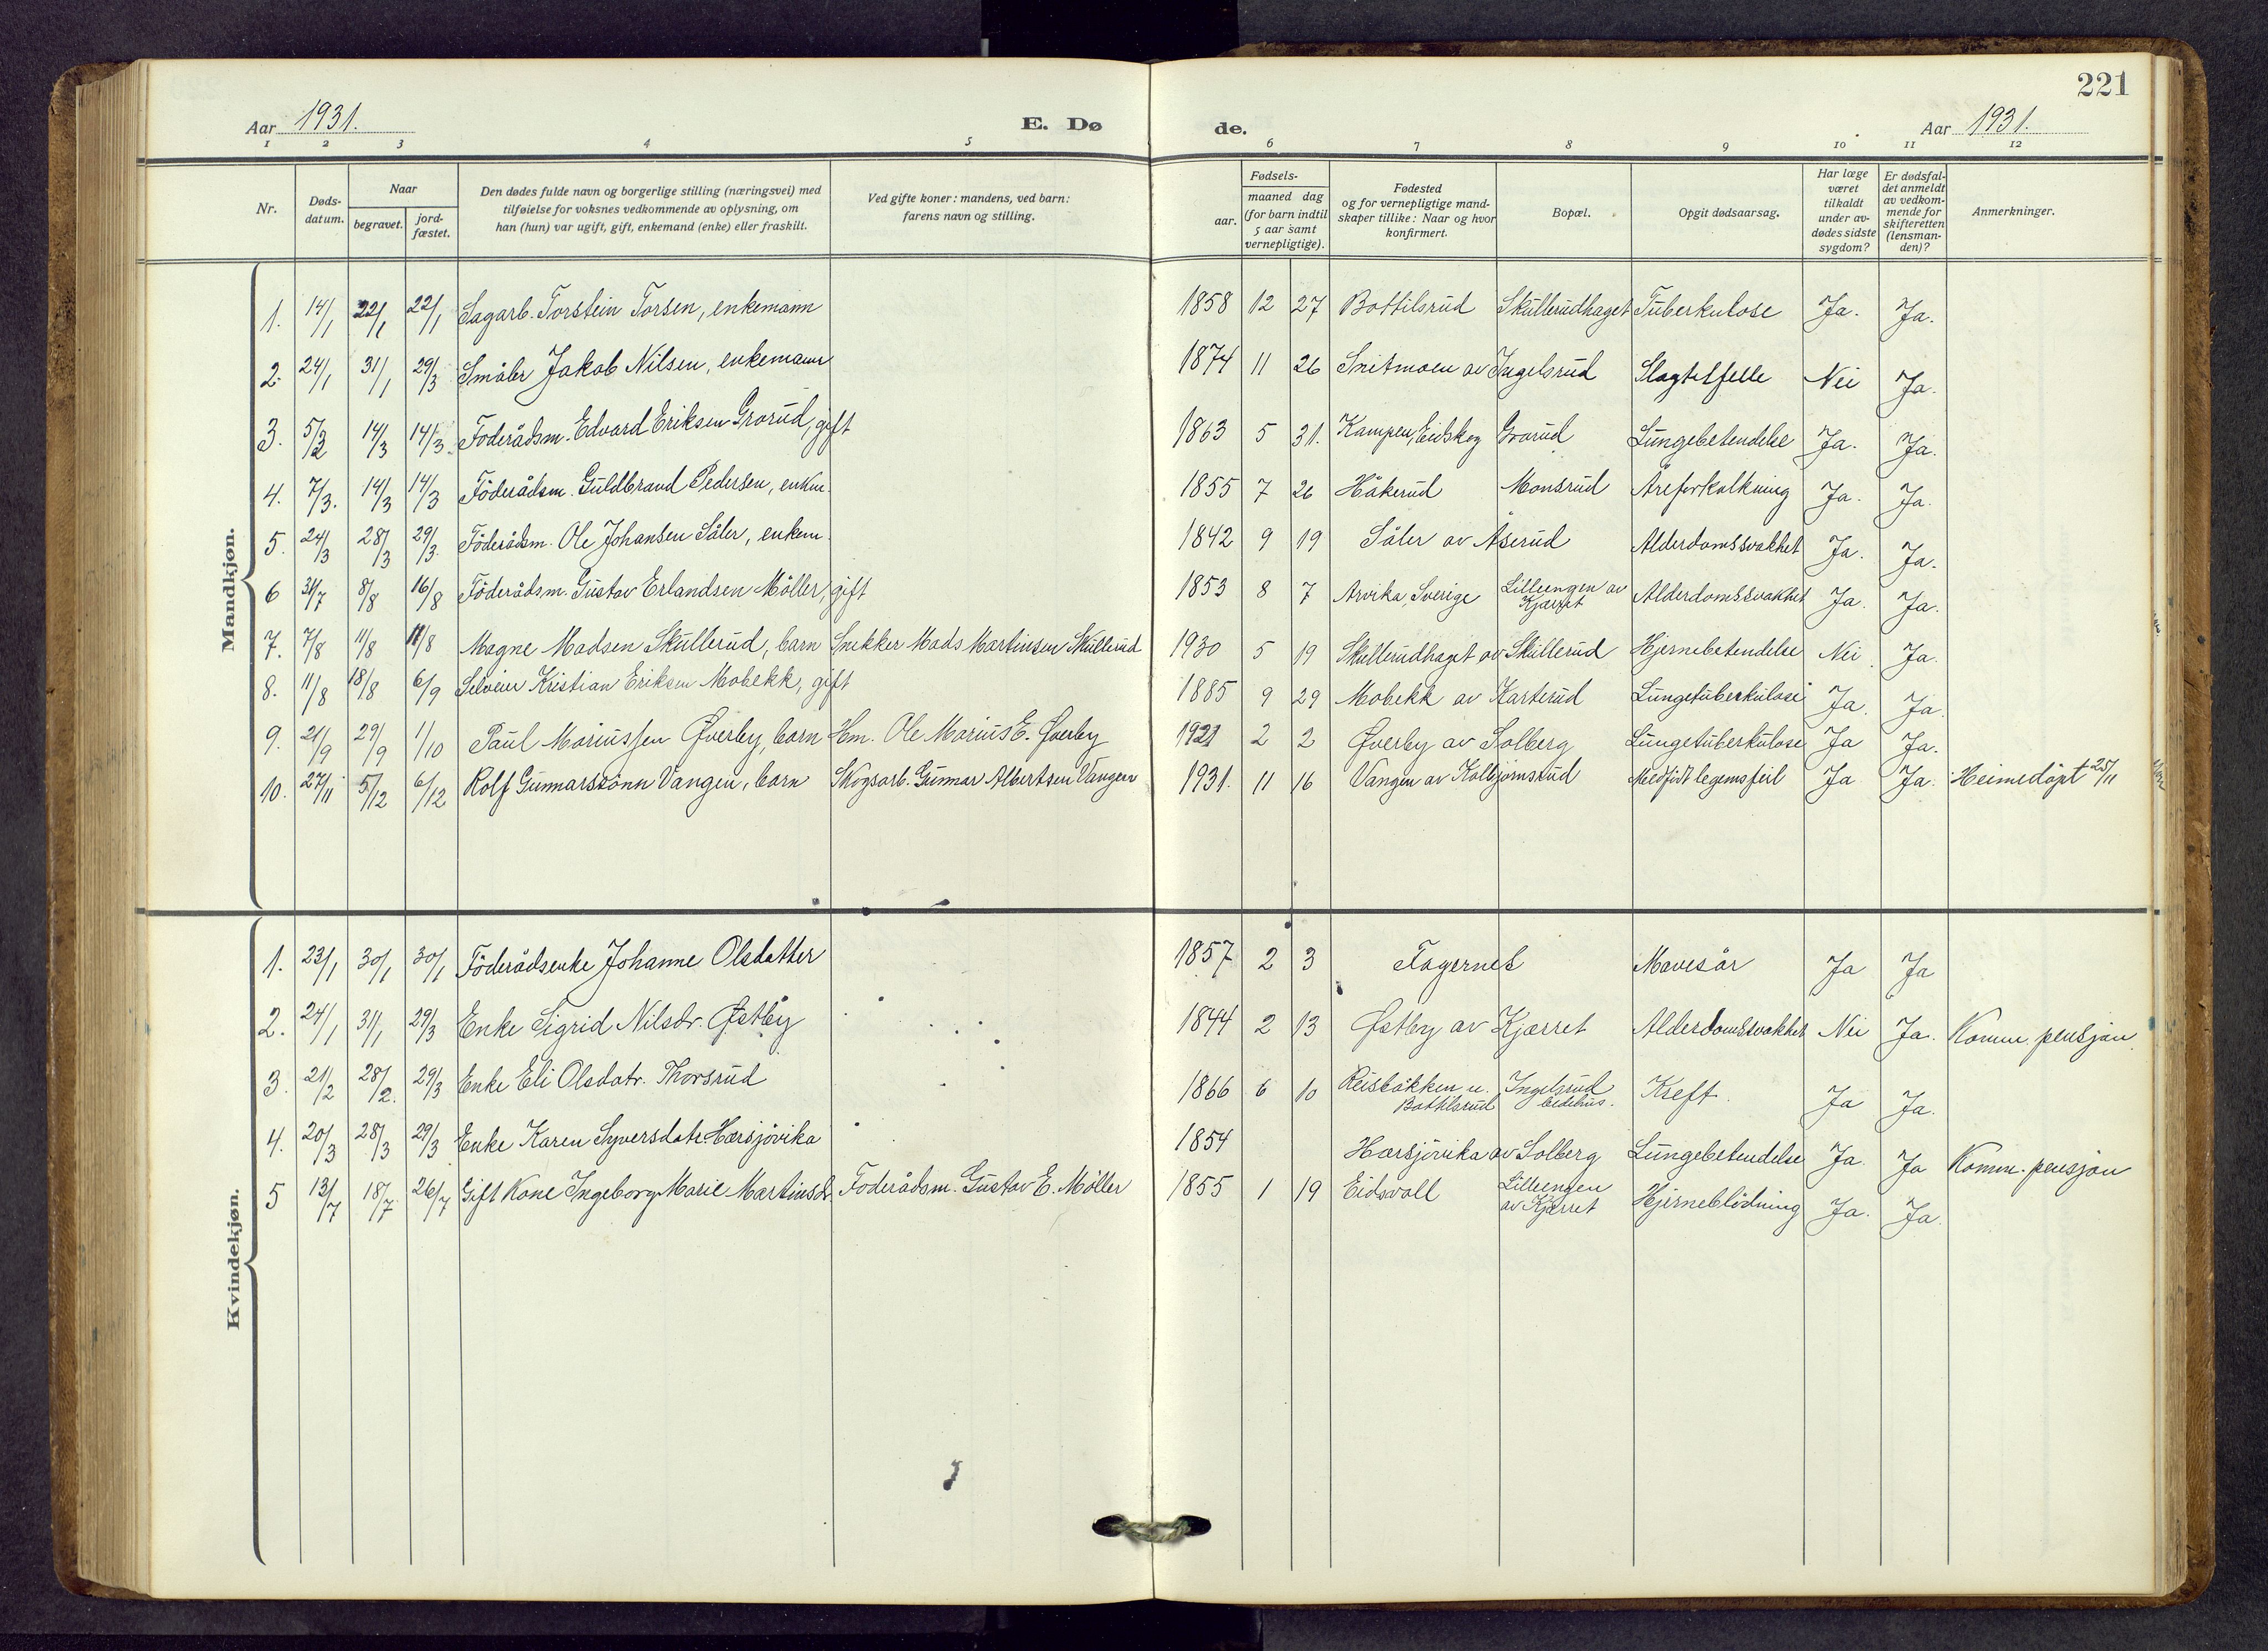 221
Aar 1931.
E. Dø
de.
Aar 1931.
1 2 3 4 5 6 7 8 9 10 11 12
Nr.
Døds-
datum.
Naar
begravet.
jord-
fæstet.
Den dødes fulde navn og borgerlige stilling (næringsvei) med
tilføielse for voksnes vedkommende av oplysning, om
han (hun) var ugift, gift, enkemand (enke) eller fraskilt.
Ved gifte koner: mandens, ved barn:
farens navn og stilling.
Fødsels-
aar.
maaned dag
(for barn indtil
5 aar samt
vernepligtige).
Fødested
og for vernepligtige mand-
skaper tillike: Naar og hvor
konfirmert.
Bopæl.
Opgit dødsaarsag.
Har læge
været
tilkaldt
under av-
dødes sidste
sygdom?
Er dødsfal-
det anmeldt
av vedkom-
mende for
skifteretten
(lensman-
den)?
Anmerkninger.
Mandkjøn.
1. 14/1 22/1 22/1 Sagarb. Torstein Torsen, enkemann 1858 12 27 Bottilsrud Skullerudhaget Tuberkulose Ja. Ja.
2. 24/1 31/1 29/3 Småbr Jakob Nilsen, enkemann 1874 11 26 Snitmoen av Ingelsrud Slagtilfelle Nei Ja.
3. 5/3 14/3 14/3 Föderådsm. Edvard Eriksen Grorud, gift 1863 5 31. Kampen, Eidskog Grorud Lungebetendelse Ja. Ja.
4. 7/3. 14/3 14/3 Föderådsm. Guldbrand Pedersen, enkm. 1855 7 26 Håkerud Monsrud Åreforkalkning Ja. Ja.
5. 24/3 28/3 29/3. Föderådsm. Ole Johansen Såler, enkem. 1842 9 19 Såler av Åserud Alderdomssvakhet Ja. Ja.
6 31/7 8/8 16/8 Föderådsm. Gustav Erlandsen Möller, gift 1853 8 7 Arvika, Sverige Lilleengen av Kjærret Alderdomssvakhet Ja. Ja.
7. 7/8 11/8 11/8 Magne Madsen Skullerud, barn Snekker Mads Martinsen Skullerud 1930 5 19 Skullerudhaget av Skullerud Hjernebetendelse Nei Ja.
8. 11/8 18/8 6/9 Selveier Kristian Eriksen Mobekk, gift 1885 9 29 Mobekk av Karterud Lungetuberkulose Ja. Ja.
9. 21/9 29/9 1/10 Paul Mariussen Øverby, barn Hm. Ole Marius E. Øverby 1921 2 2 Øverby av Solberg Lungetuberkulose Ja Ja.
10. 27/11 5/12 6/12 Rolf Gunnarssönn Vangen, barn Skogsarb. Gunnar Albertsen Vangen 1931. 11 16 Vangen av Kolbjörnsrud Medfödt legemsfeil Ja Ja. Heimedöpt 25/11
Kvindekjøn.
1. 23/1 30/1 30/1 Föderådsenke Johanne Olsdatter 1857 2 3 Fagernes Mavesår Ja Ja
2. 24/1 31/1 29/3 Enke Sigrid Nilsdr. Østby 1844 2 13 Østby av Kjærret Alderdomssvakhet Nei Ja. Komm. pensjon
3. 21/2 28/2. 29/3 Enke Eli Olsdatr. Thorsrud 1866 6 10 Reisbåkken u. Bottilsrud Ingelsrud bedehus. Kreft. Ja Ja.
4. 20/3 28/3 29/3 Enke Karen Syversdatr Hærsjövika 1854 Hærsjövika av Solberg Lungebetendelse Ja. Ja Komm. pensjon
5 13/7 18/7 26/7 Gift Kone Ingeborg Marie Martinsdr. Föderådsm. Gustav E. Möller 1855 1 19 Eidsvoll Lilleengen av Kjærret Hjerneblödning Ja. Ja.